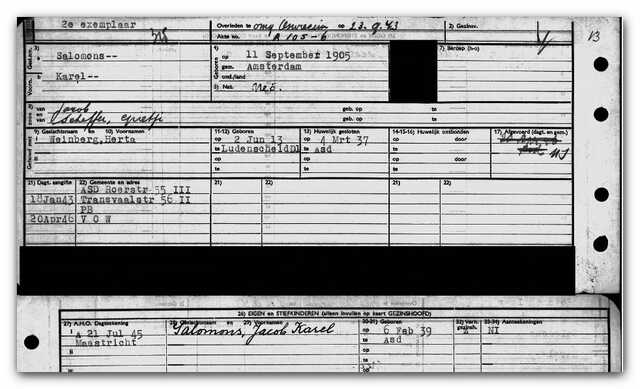 2e exemplaar
Overleden te omg Oswiecim op 23.9.43
Akte no. A 105-6
2) Gezinsv.
13
3)
Salomons--
Karel--
4)
op 11 September 1905
gem. Amsterdam
ond./land
5) Nat. Ned.
7) Beroep (h-o)
8) van Jacob geb. op te
en Scheffer, Grietje geb. op te
9) Geslachtsnaam en 10) Voornamen
Weinberg, Herta
11-12) Geboren
op 2 Jun 13
te Ludenscheid Dl
13) Huwelijk gesloten
op 4 Mrt 37
te Asd
14-15-16) Huwelijk ontbonden
door
op
te
17) Afgevoerd (dagt. en gem.)
NI
Gehuwd met
21) Dagt. aangifte 22) Gemeente en adres
ASD Roerstr 55 III
18Jan43 Transvaalstr 56 II
PB
20Apr46 V O W
26) EIGEN en STIEFKINDEREN (alleen invullen op kaart GEZINSHOOFD)
27) A.H.O. Dagtekening
A 21 Jul 45
Maastricht
28) Geslachtsnaam en 29) Voornamen
Salomons, Jacob Karel
30-31) Geboren
op 6 Feb 39
te Asd
op
te
op
32) Verh. gezinsh.
Z
33-34) Aantekeningen
NI